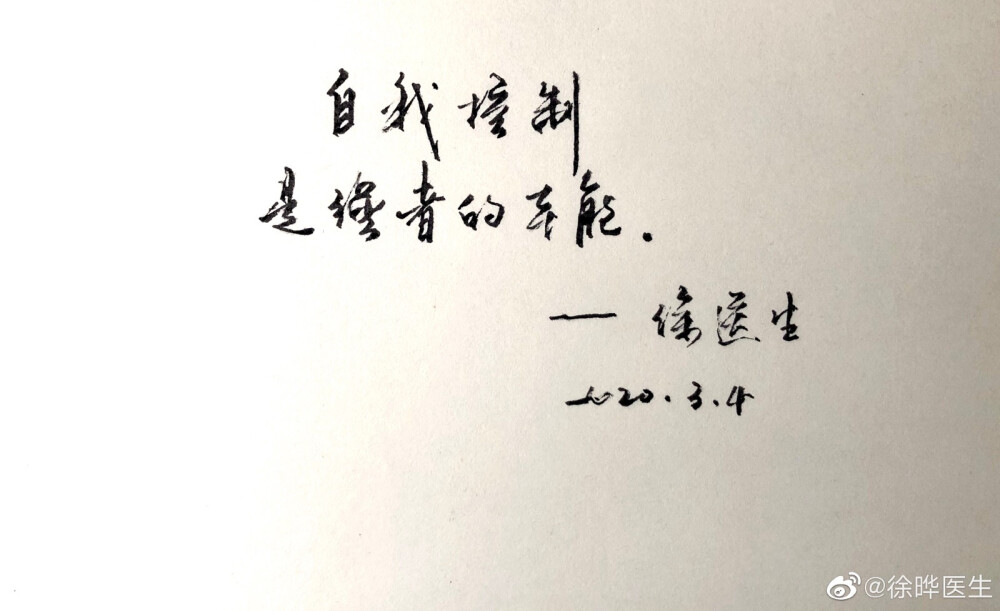 自我控制
是强者的本能.
—徐医生
2020.3.4
@徐晔医生